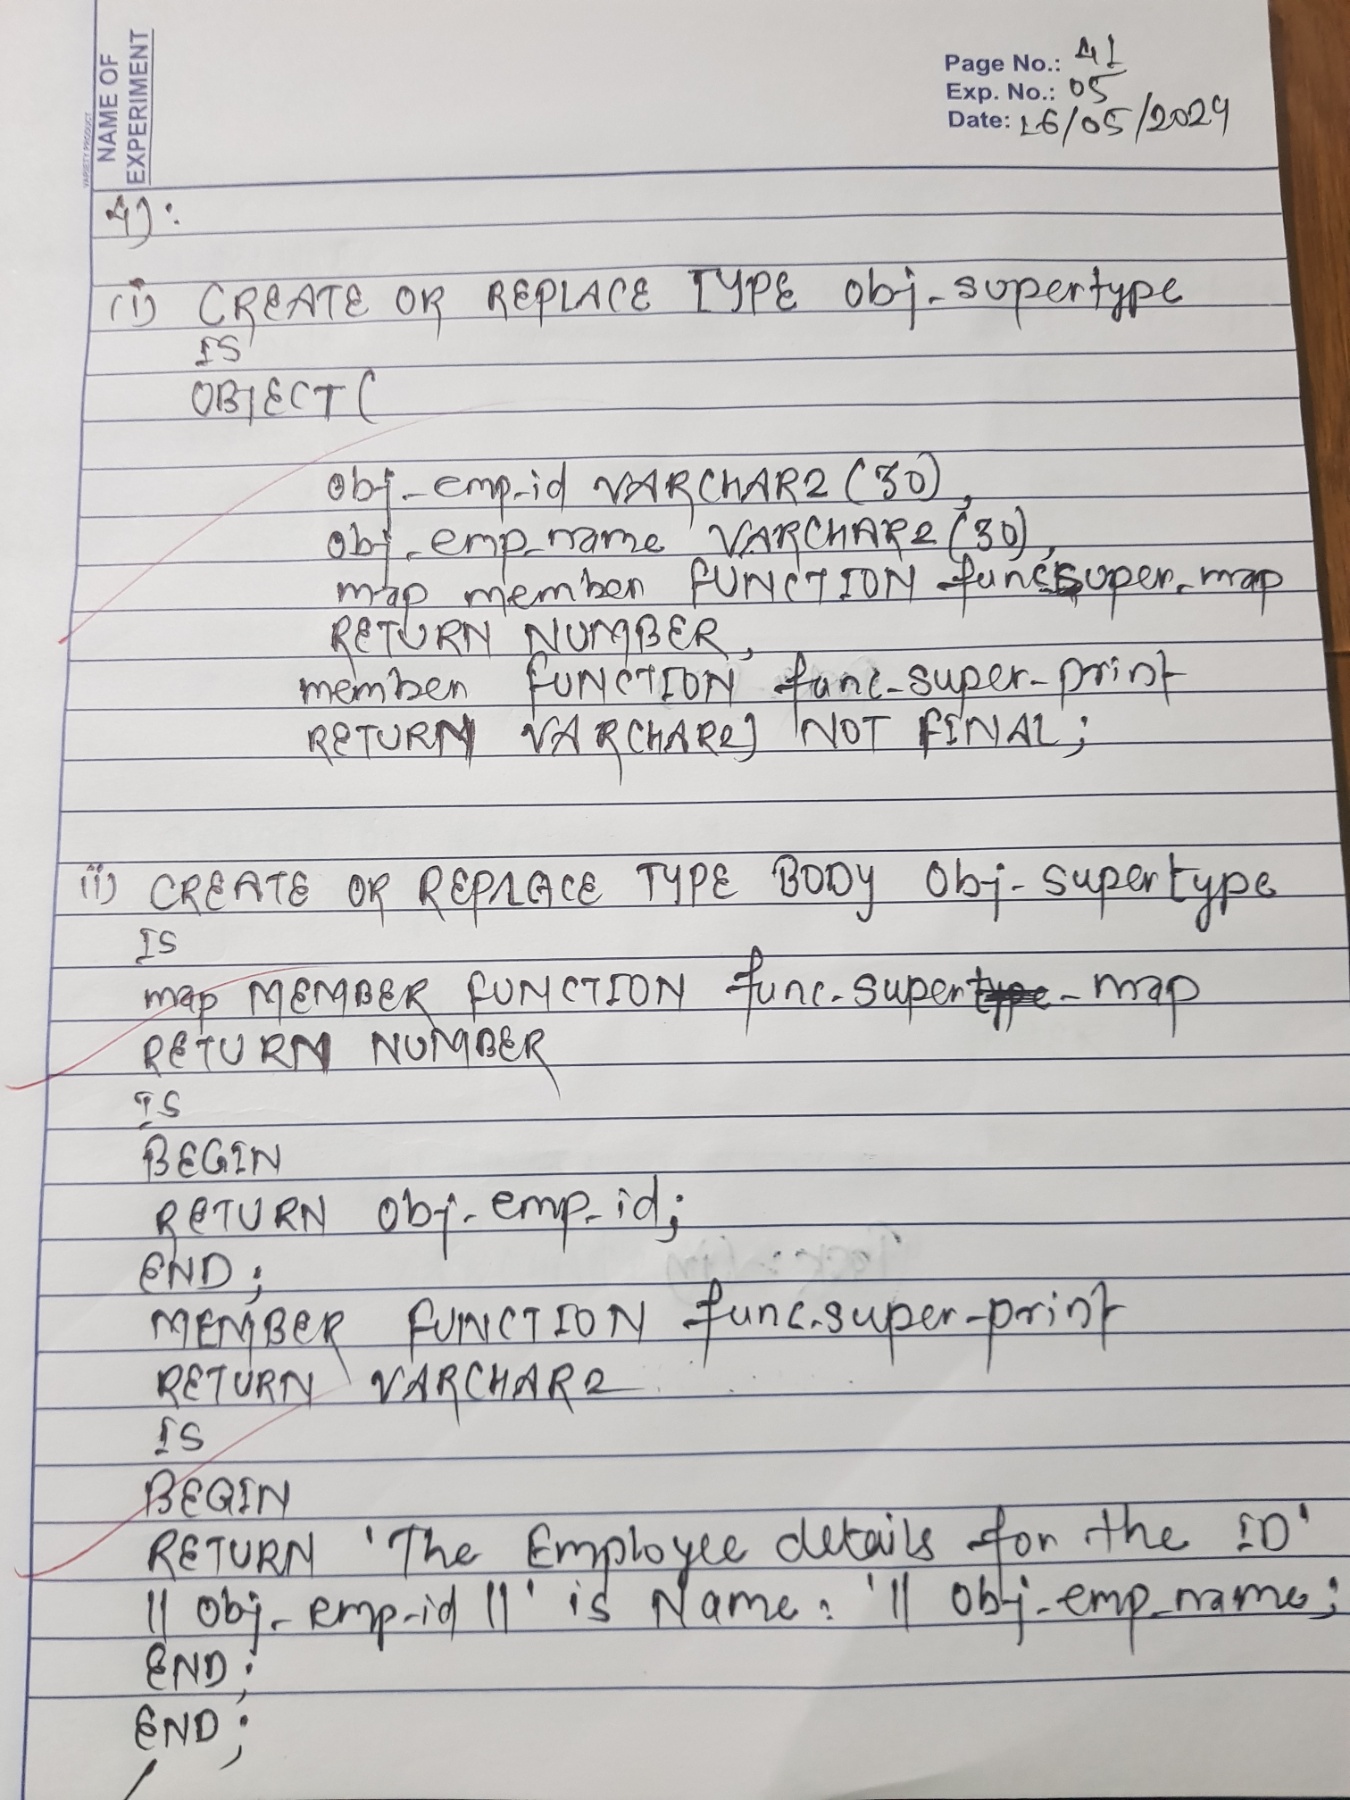 NAME OF
EXPERIMENT
VARIETY PRODUCT
Page No.: 41
Exp. No.: 05
Date: 16/05/2024
4):
(i) CREATE OR REPLACE TYPE obj-supertype
IS
OBJECT(
obj-emp-id VARCHAR2(30),
obj-emp-name VARCHAR2(30),
map member FUNCTION func-super-map
RETURN NUMBER,
member FUNCTION func-super-print
RETURN VARCHAR2) NOT FINAL;
ii) CREATE OR REPLACE TYPE BODY obj-supertype
IS
map MEMBER FUNCTION func-super-map
RETURN NUMBER
IS
BEGIN
RETURN obj-emp-id;
END;
MEMBER FUNCTION func-super-print
RETURN VARCHAR2
IS
BEGIN
RETURN 'The Employee details for the ID'
|| obj-emp-id ||' is Name: '|| obj-emp-name;
END;
END;
/